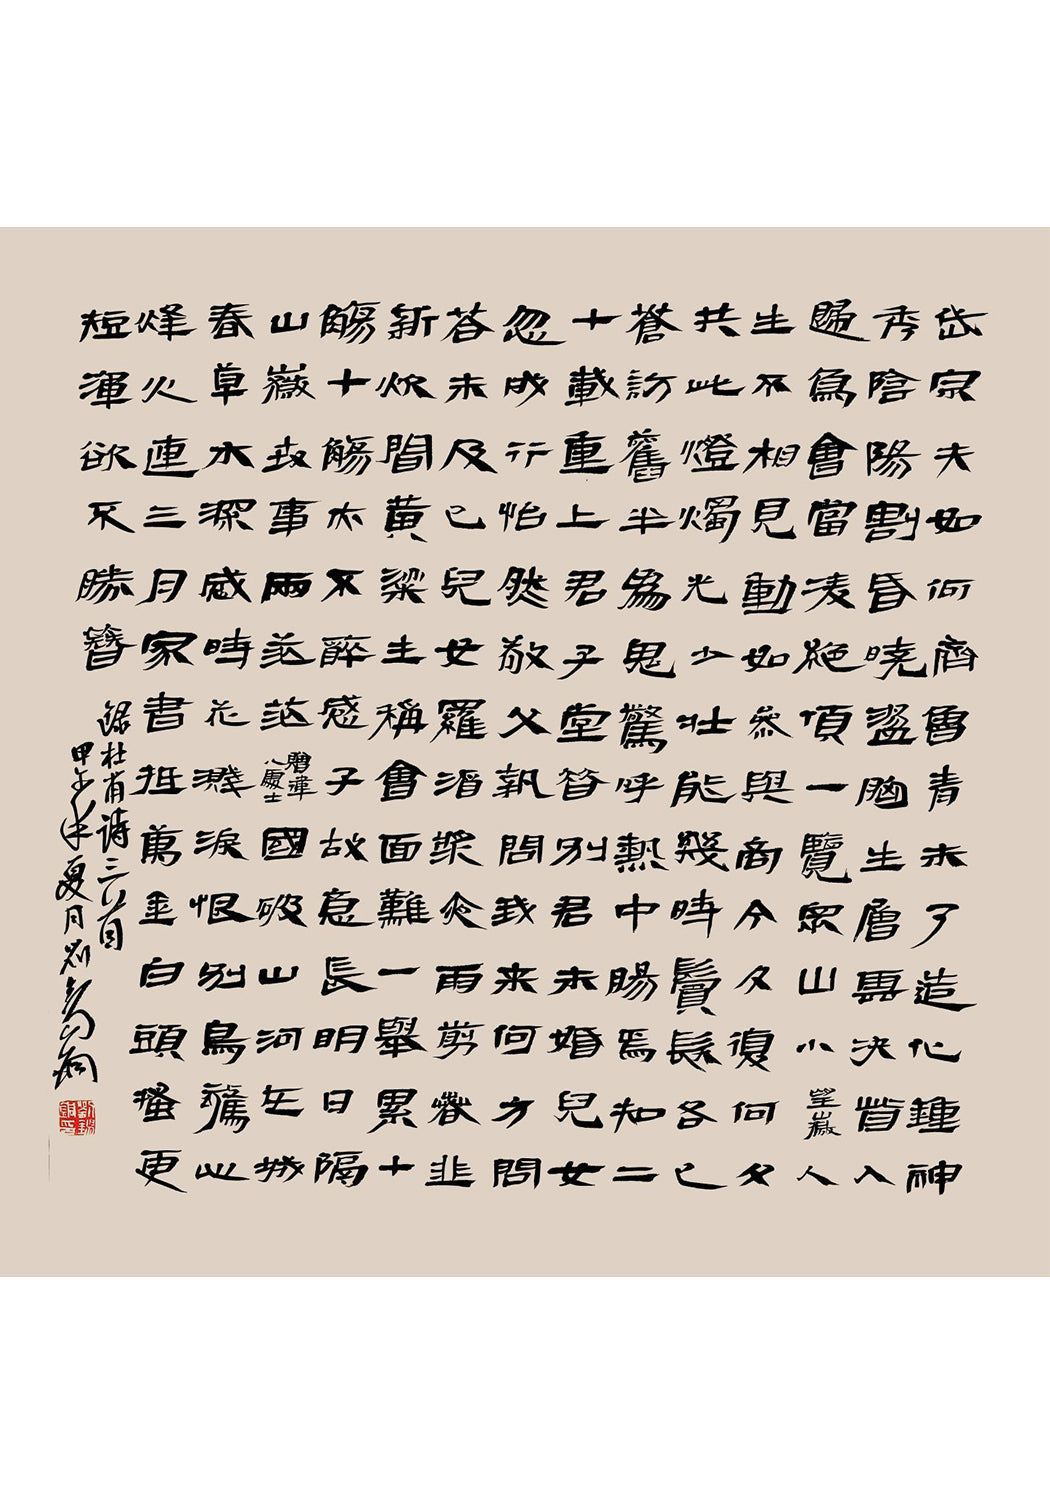 岱宗夫如何齊魯青未了造化鍾神
秀陰陽割昏曉盪胸生層雲決眥入
歸鳥會當凌絕頂一覽衆山小望嶽人
生不相見動如參與商今夕復何夕
共此燈燭光少壯能幾時鬢髮各已
蒼訪舊半為鬼驚呼熱中腸焉知二
十載重上君子堂昔別君未婚兒女
忽成行怡然敬父執問我来何方問
答未及已兒女羅酒漿夜雨剪春韭
新炊間黃粱生稱會面難一舉累十
觴十觴亦不醉感子故意長明日隔
山嶽世事兩茫茫贈衛八處士國破山河在城
春草木深感時花濺淚恨別鳥驚心
烽火連三月家書抵萬金白頭搔更
短渾欲不勝簪
錄杜甫詩三首
甲午年夏月劉